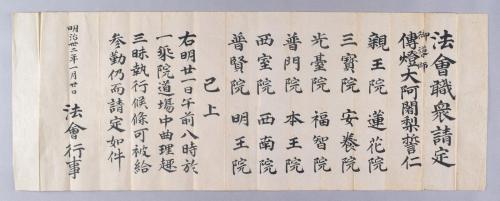 法會職衆請定
御導師
傳燈大阿闍梨誓仁
親王院 蓮花院
三寶院 安養院
光臺院 福智院
普門院 本王院
西室院 西南院
普賢院 明王院
已上
右明廿一日午前八時於
一乘院道場中曲理趣
三昧執行候條可被給
參勤仍而請定如件
明治卅二年一月廿日
法會行事